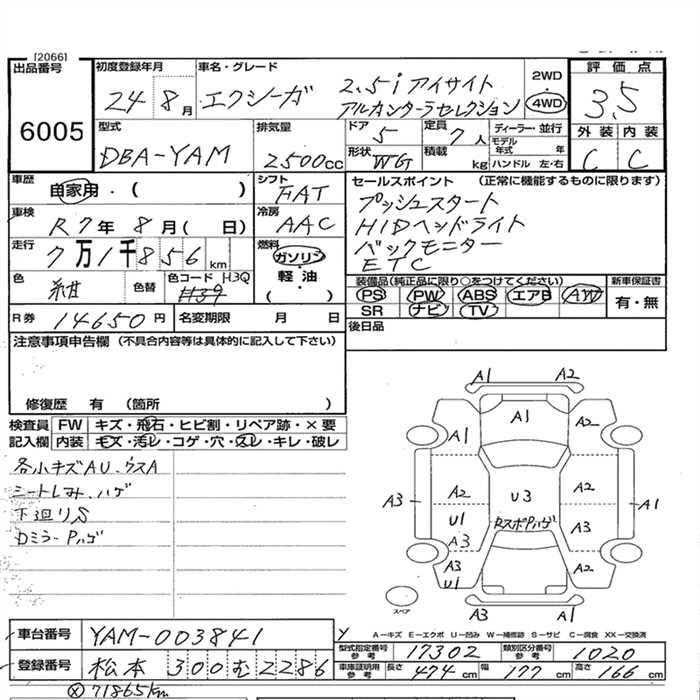 [2066]
出品番号
6005
初度登録年月
24 8月
車名・グレード
エクシーガ 2.5i アイサイト
アルカンターラセレクション
2WD
4WD
評価点
3.5
外装 内装
C C
型式
DBA-YAM
排気量
2500cc
ドア
5
定員
7人
形状
WG
積載
kg
ディーラー・並行
モデル年式 年
ハンドル 左・右
車歴
自家用・( )
シフト
FAT
車検
R7年8月( 日)
冷房
AAC
走行
7万1千856km
燃料
ガソリン
軽・油
( )
色
紺
色替
色コード H3Q
H39
R券 14650円
名変期限 月 日
セールスポイント (正常に機能するものに限ります)
プッシュスタート
HIDヘッドライト
バックモニター
ETC
装備品(純正品に限り○をつけてください)
新車保証書
PS PW ABS エアB AW
SR ナビ TV
有・無
後日品
注意事項申告欄 (不具合内容等は具体的に記入して下さい)
修復歴 有 (箇所 )
検査員 FW キズ・飛石・ヒビ割・リペア跡・×要
記入欄 内装 キズ・汚レ・コゲ・穴・スレ・キレ・破レ
各小キズAU、ウスA
シートしみ、ハゲ
下廻りS
DミラーPハゲ
A1 A2
A1
A1 A2
A3 A2 U3 A2 A1
U1 RスポPハゲ A3
A3
A3 A2
U1
A3 A1
スペア
A-キズ E-エクボ U-凹み W-補修跡 S-サビ C-腐食 XX-交換済
車台番号 YAM-003841
登録番号 松本 300 む 2286
型式指定番号 参考 17302
類別区分番号 参考 1020
車庫証明用 参考 長さ 474cm 幅 177cm 高さ 166cm
71865km